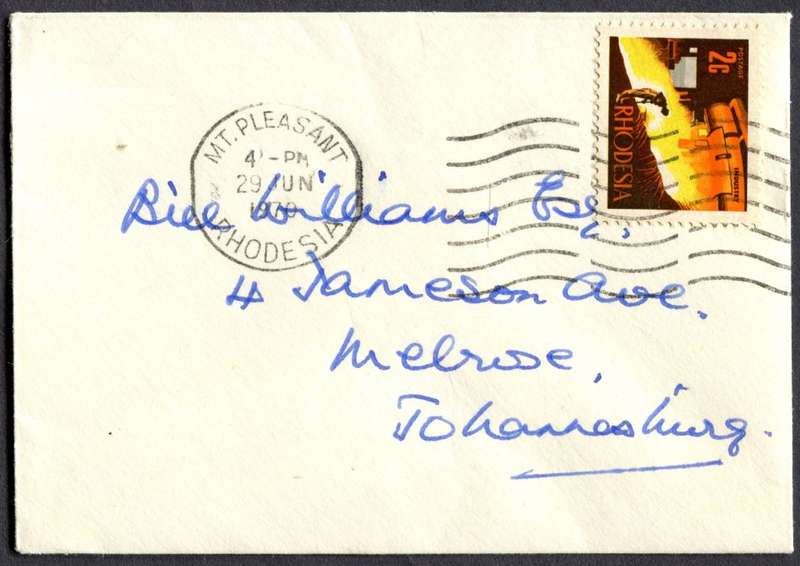 POSTAGE
2c
RHODESIA
INDUSTRY
MT. PLEASANT
4 - PM
29 JUN
1970
RHODESIA
Bill Williams Esq.
4 Jameson Ave.
Melrose,
Johannesburg.